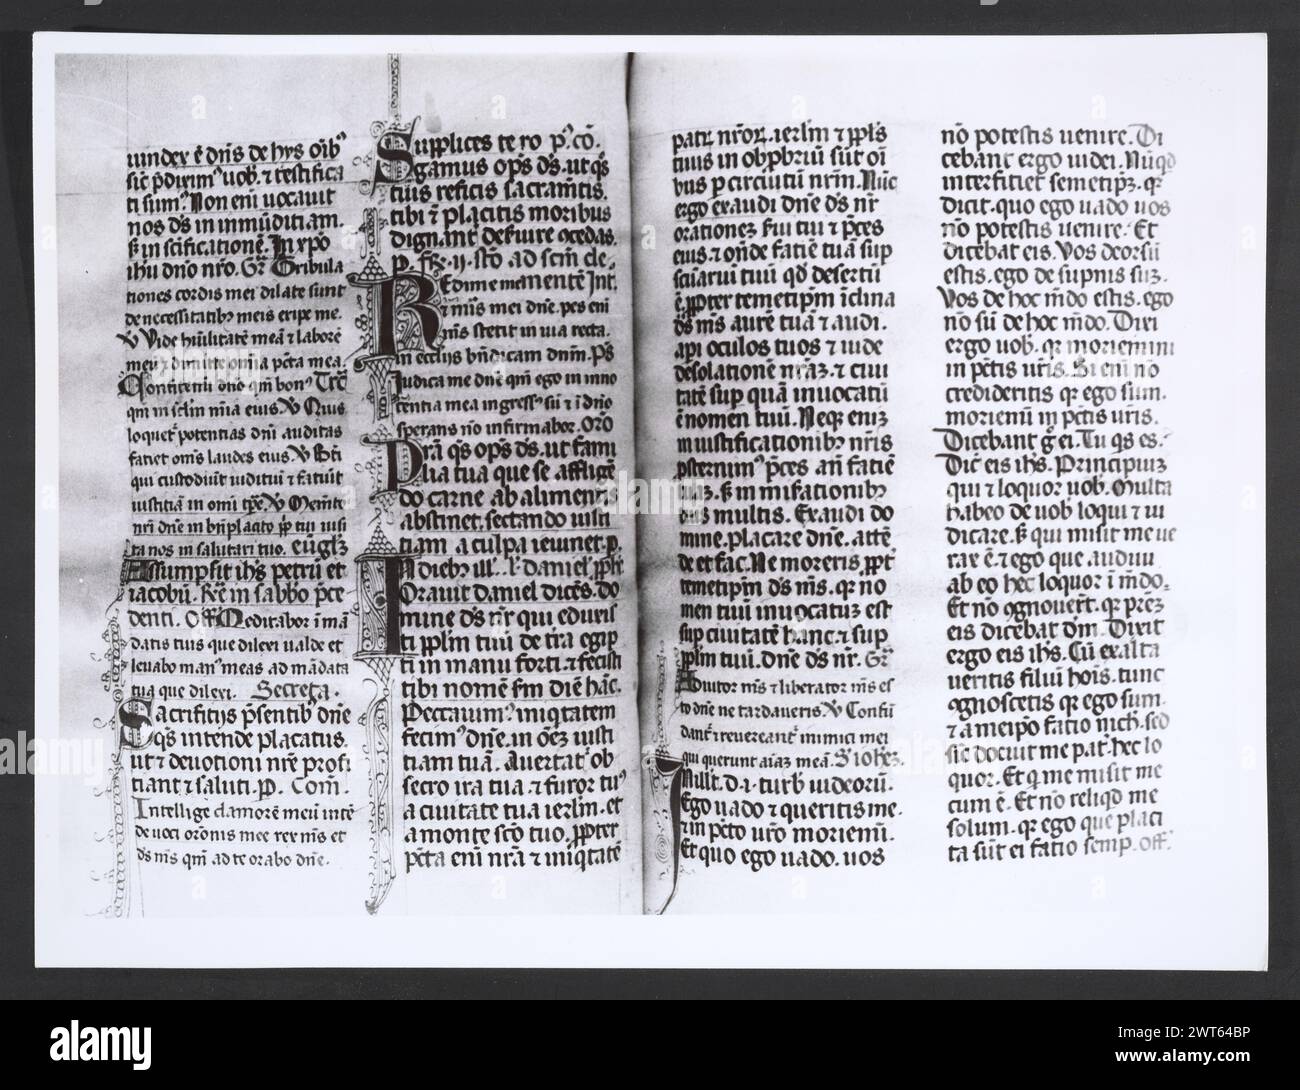 iundex ē dn̄s de hys oīb'
sic̄ p̄dixim' uob. ⁊ testifica
ti sum'. Non eni uocauit
nos d̄s in inmūditiam.
s; in sc̄ificationē. In xp̄o
ih̄u dn̄o nr̄o. Gr̄. Tribula
tiones cordis mei dilate sunt
de necessitatib' meis eripe me.
℣ Uide hūilitatē meā ⁊ laborē
meū ⁊ dimitte om̄ia pc̄ta mea.
Confitemi dn̄o qm̄ bon'. Trc̄.
qm̄ in sc̄lm mīa eius. ℣ Quis
loquet' potentias dn̄i auditas
faciet om̄s laudes eius. ℣ Bt̄i
qui custodiūt iuditiū ⁊ faciūt
iustitiā in om̄i tp̄e. ℣ Memēto
nr̄i dn̄e in bn̄placito pp̄li tui uisi
ta nos in salutari tuo. eūglz̄
Assumpsit ihs̄ petrū et
iacobū. Re in sabbo p̄ce
denti. Off̄ Meditabor ī mā
datis tuis que dilexi ualde et
leuabo man' meas ad mādata
tua que dilexi. Secreta.
Sacrificijs p̄sentib' dn̄e
q̄s intende placatus.
ut ⁊ deuotioni nr̄e profi
ciant ⁊ saluti. P. Com̄.
Intellige clamorē meū intē
de uoci or̄onis mee rex m̄s et
d̄s m̄s qm̄ ad te orabo dn̄e.
Supplices te ro P' cō.
gamus op̄s d̄s. ut q̄s
tuis reficis sacram̄tis.
tibi ⁊ placitis moribus
dignant' deseruire ↄcedas.
P. fr̄. ij. stō ad scm̄ cle.
Redime me mane tenē Int̄.
⁊ m̄is mei dn̄e. pes eni
m̄s stetit in uia recta.
in ecclijs bn̄dicam dn̄m. P̄s
Iudica me dn̄e qm̄ ego in inno
centia mea ingress' sū ⁊ ī dn̄o
sperans nō infirmabor. Or̄o
Pra q̄s op̄s d̄s. ut fami
lia tua que se affligē
do carne ab alimentis
abstinet. sectando iusti
tiam a culpa ieiunet. P.
In dieb' ill'. L' daniel. pph̄e
Orauit daniel dicēs. do
mine d̄s nr̄ qui eduxis
ti pp̄lm tuū de tr̄a egip
ti in manu forti. ⁊ fecisti
tibi nomē sm̄ diē hāc.
Peccauim' iniq̄tatem
fecim' dn̄e. in oēz iusti
tiam tuā. Auertat' ob
secro ira tua. ⁊ furor tu'
a ciuitate tua ierlm̄. et
a monte scō tuo. ppter
pc̄ta eni nr̄a ⁊ iniq̄tatē
patz nr̄oꝝ. ierlm̄ ⁊ ppl's
tuus in obprb̄riū sūt oī
bus p circuitū nr̄m. Nūc
ergo exaudi dn̄e d̄s nr̄
orationez s̄ui tui ⁊ p̄ces
eius. ⁊ ōnde faciē tuā sup
sc̄iariū tuū qd̄ desertū
ē. ppter temetip̄m īclina
d̄s m̄s aurē tuā ⁊ audi.
api oculos tuos ⁊ uide
desolationē nr̄az. ⁊ ciui
tatē sup quā inuocatū
ē nomen tuū. Neq̄ eniz
in iustificationib' nr̄is
psternim' p̄ces an̄ faciē
tuaz. s; in mis̄ationib'
tuis multis. Exaudi do
mine. placare dn̄e. attē
de et fac. Ne moreris ppt̄
temetip̄m d̄s m̄s. qz no
men tuū inuocatuz est
sup ciuitatē hanc. ⁊ sup
pp̄lm tuū. dn̄e d̄s nr̄. Gr̄.
Adiutor m̄s ⁊ liberator m̄s es
to dn̄e ne tardaueris. ℣ Confū
dant' ⁊ reuereant' inimici mei
qui querunt aiāz meā. S' iohez.
In ill't. d. i. turb' iudeorū.
Ego uado ⁊ queritis me.
⁊ in pc̄to ur̄o moriemī.
Et quo ego uado. uos
nō potestis uenire. Di
cebant ergo iudei. Nūqd
interficiet semetip̄z. qz
dicit. quo ego uado uos
nō potestis uenire. Et
dicebat eis. Vos deorsū
estis. ego de supnis sūz.
Vos de hoc m̄do estis. ego
nō sū de hoc m̄do. Dixi
ergo uob. qz moriemini
in pc̄tis ur̄is. Si eni nō
credideritis qz ego sum.
moriemī in pc̄tis ur̄is.
Dicebant g̊ ei. Tu q̄s es.
Dic̄ eis ihs̄. Principiuz
qui ⁊ loquor uob. Multa
habeo de uob loqui ⁊ iu
dicare. s; qui misit me ue
rax ē. ⁊ ego que audiui
ab eo hec loquor ī m̄do.
Et nō ↄgnouert̄. qz pr̄ez
eis dicebat dm̄. Dixit
ergo eis ihs̄. Cū exalta
ueritis filiū hoīs. tunc
ↄgnoscetis qz ego sum.
⁊ a meip̄o facio nich'. sed
sic̄ docuit me pat'. hec lo
quor. Et q̄ me misit me
cum ē. Et nō reliqd me
solum. qz ego que placi
ta sūt ei facio semp. Off̄.
alamy
Image ID: 2WT64BP
www.alamy.com